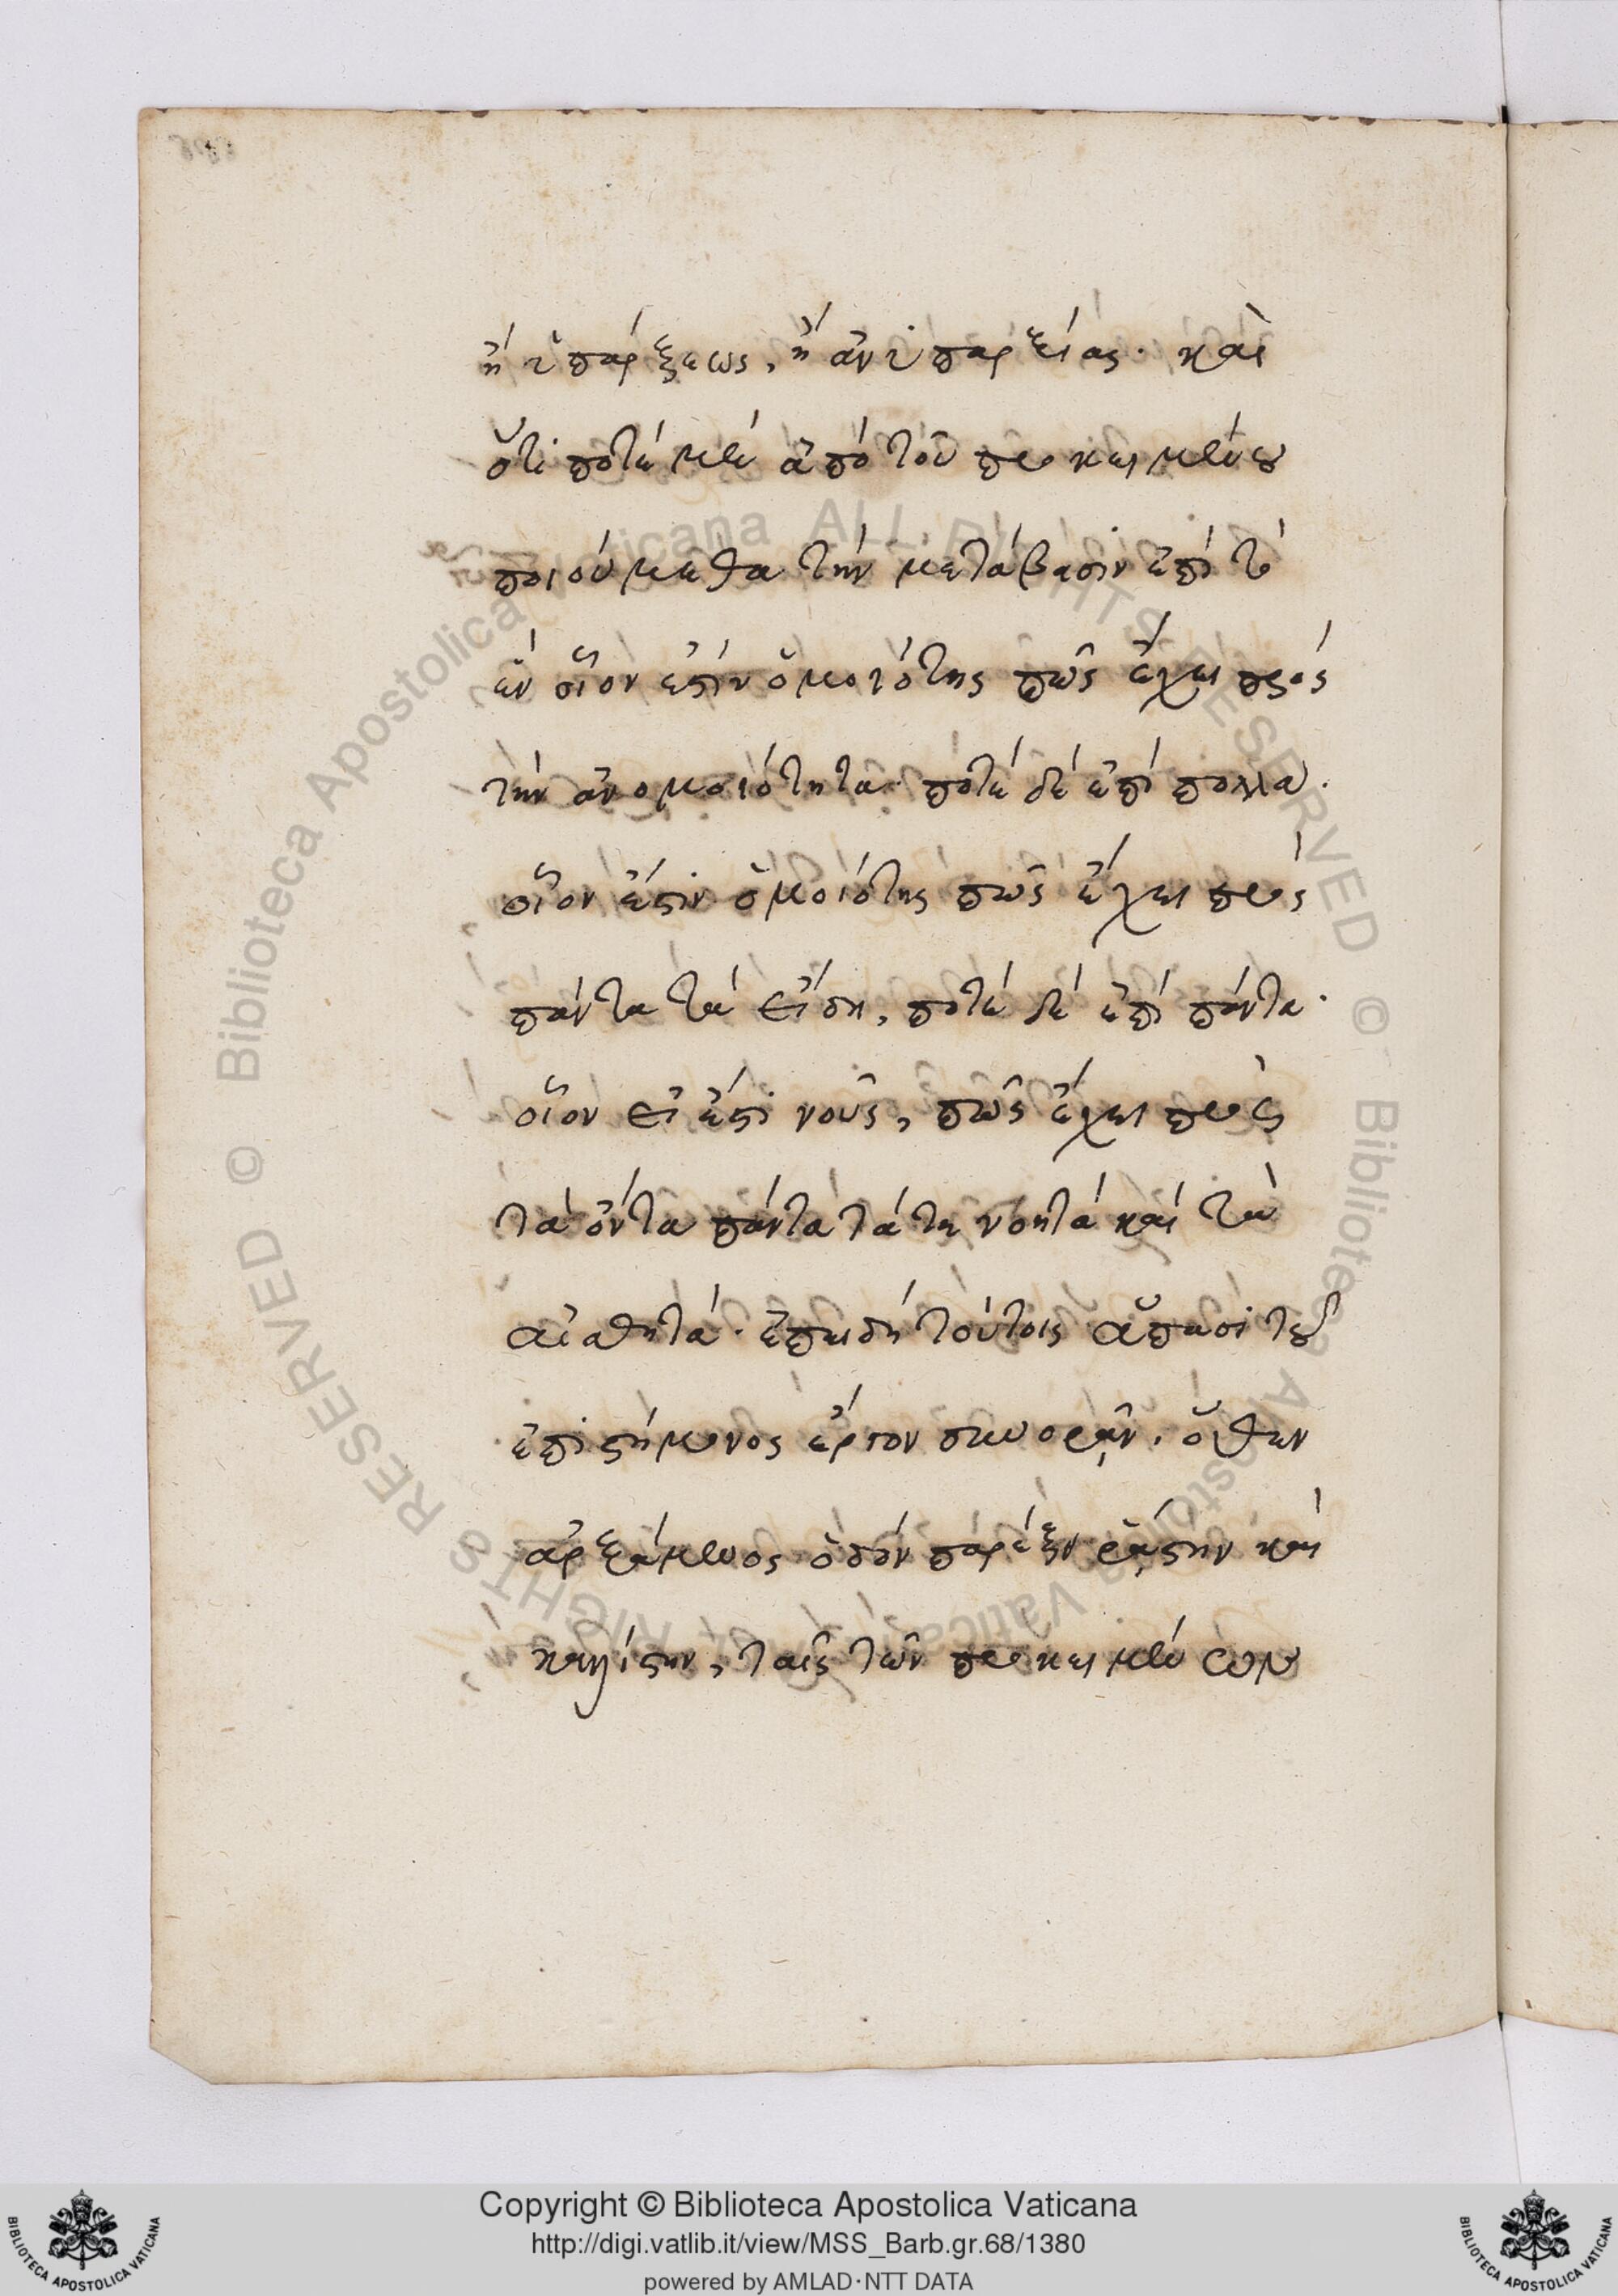 ἢ ὑπάρξεως, ἢ ἀνυπαρξίας· καὶ
ὅτι ποτὲ μὲν ἀπὸ τοῦ προκειμένου
ποιούμεθα τὴν μετάβασιν ἐπὶ τὸ
ἓν οἷον ἐστὶν ὁμοιότης πῶς ἔχει πρὸς
τὴν ἀνομοιότητα· ποτὲ δὲ ἐπὶ πολλα·
οἷον ἐστὶν ὁμοιότης πῶς ἔχει πρὸς
πάντα τὰ εἴδη, ποτὲ δὲ ἐπὶ πάντα·
οἷον εἰ ἔστι νοῦς, πῶς ἔχει πρὸς
τὰ ὄντα πάντα τά τε νοητὰ καὶ τὰ
αἰσθητά· ἐπειδὴ τούτοις ἅπασι τοῦ
ἐπιστήμονος ἔργον συνορᾶν, ὅθεν
ἀρξάμενος ὁδὸν παρέξει ῥᾴστην καὶ
καλλίστην, ταῖς τῶν προκειμένων
Copyright © Biblioteca Apostolica Vaticana
http://digi.vatlib.it/view/MSS_Barb.gr.68/1380
powered by AMLAD·NTT DATA
BIBLIOTECA APOSTOLICA VATICANA
BIBLIOTECA APOSTOLICA VATICANA
© Biblioteca Apostolica Vaticana ALL RIGHTS RESERVED © Biblioteca Apostolica Vaticana ALL RIGHTS RESERVED